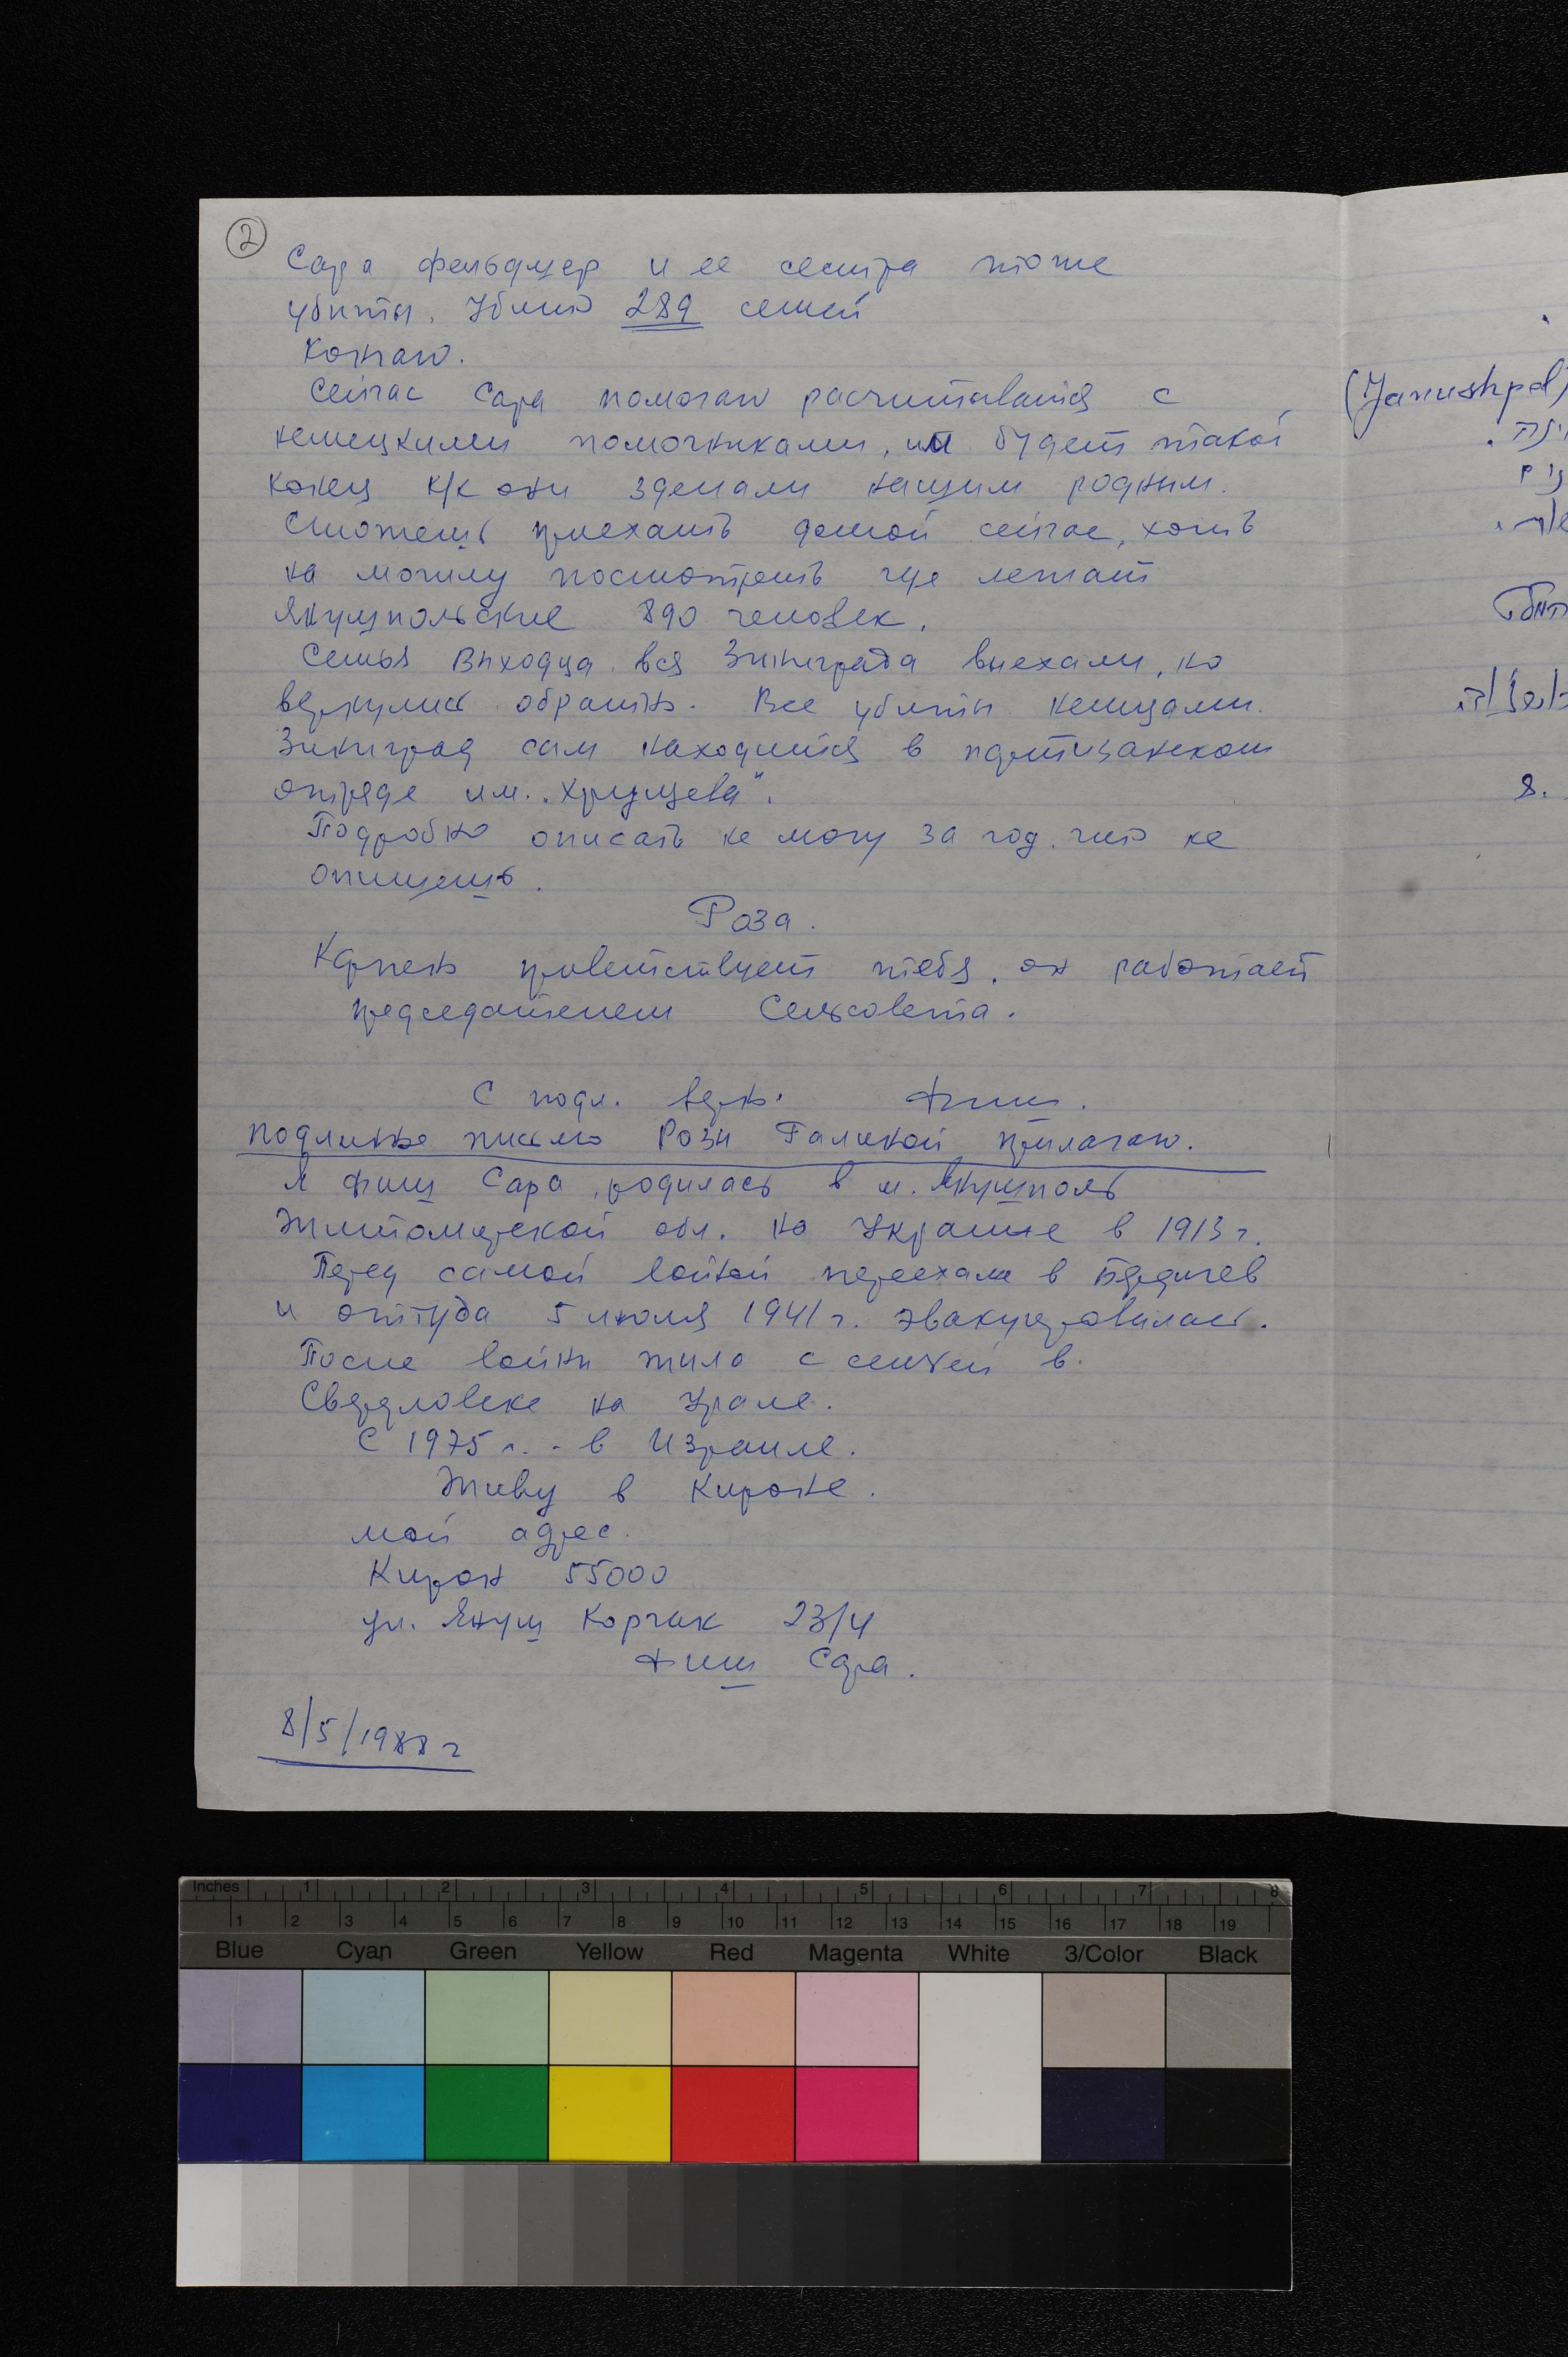 2
Сара Фельдшер и ее сестра тоже
убиты. Убито 289 семей
Кончаю.
Сейчас Сара помогаю расчитываться с
немецкими помочниками, им будет такой
конец к/к они зделали нашим родным.
Сможешь приехать домой сейчас, хоть
на могилу посмотреть где лежат
Янушпольские 890 человек.
Семья Выходца вся Зинграда выехали, но
вернулись обратно. Все убиты немцами.
Зинград сам находится в партизанском
отряде им. "Хрущева".
Подробно описать не могу за год. что не
опишешь.
Роза.
Карпень приветствует тебя. он работает
председателем Сельсовета.
С подл. верно. Фиш.
подлинное письмо Розы Галиной прилагаю.
Я Фиш Сара, родилась в м. Янушполь
Житомирской обл. на Украине в 1913 г.
Перед самой войной переехала в Бердичев
и оттуда 5 июля 1941 г. эвакуировалась.
После войны жила с семьей в
Свердловске на Урале.
С 1975 г. - в Израиле.
Живу в Кироне.
мой адрес.
Кирон 55000
ул. Януш Корчак 23/4
Фиш Сара.
8/5/1988 г
(Janushpol)
8.